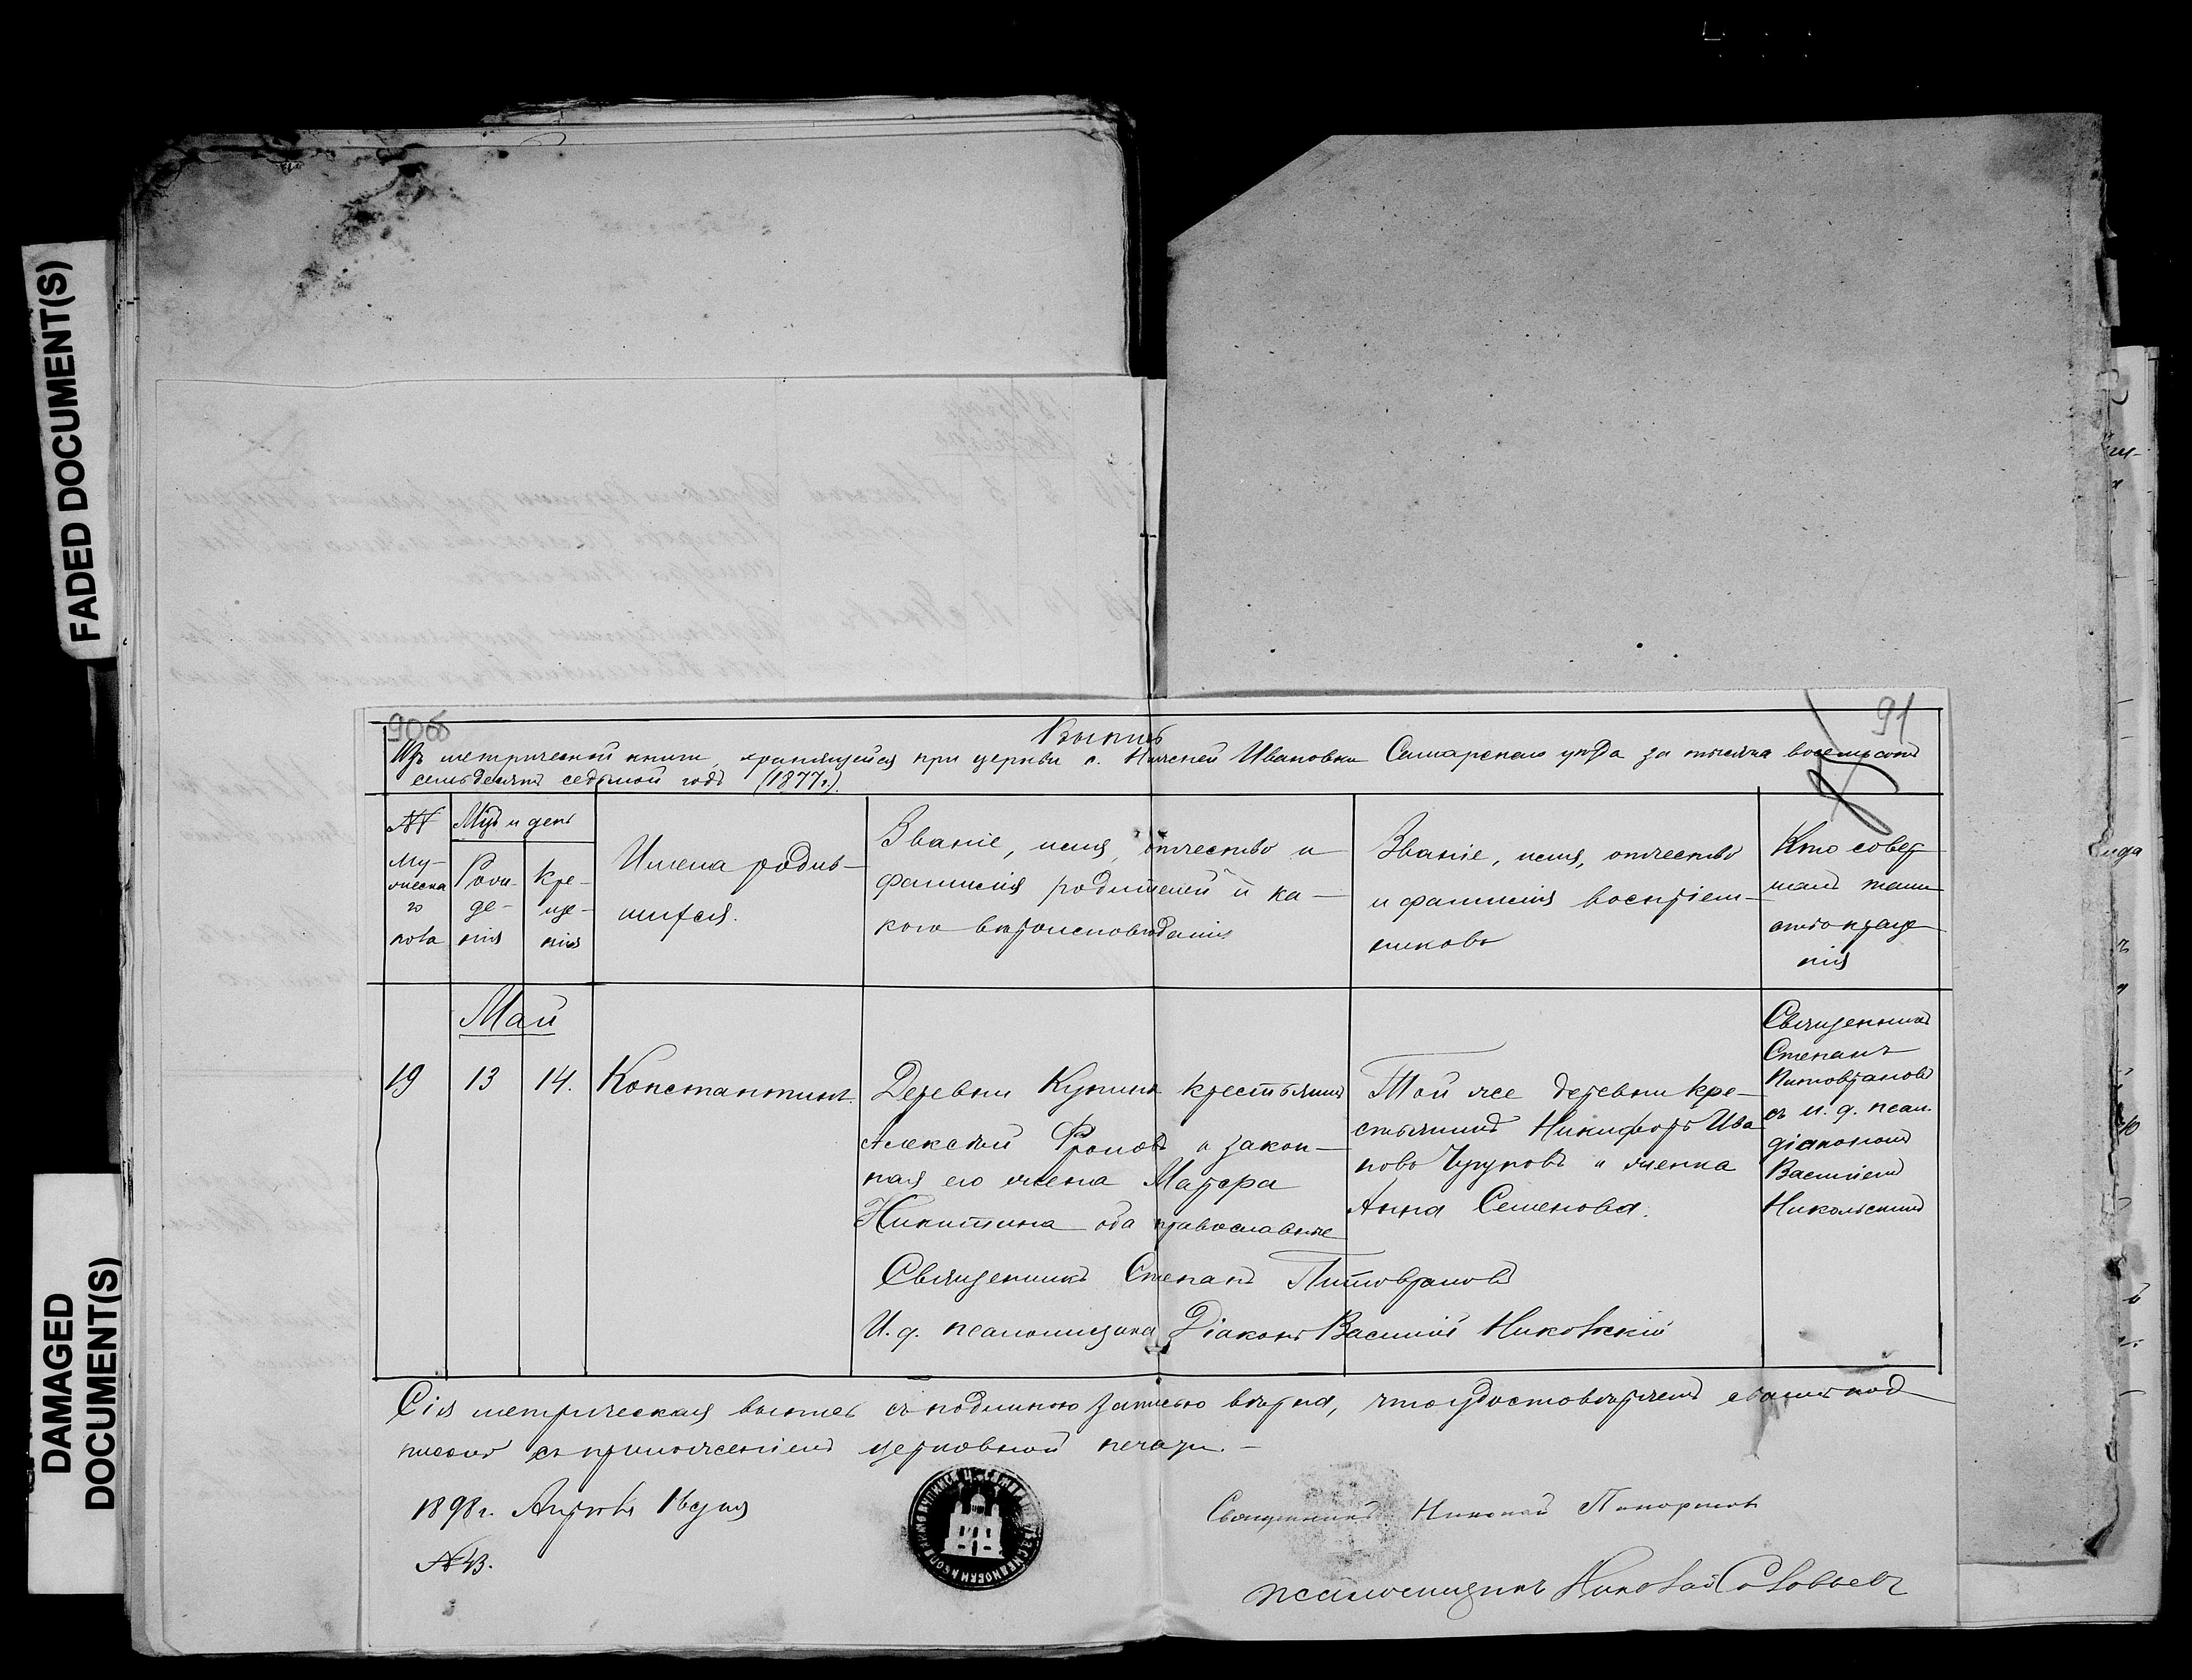 FADED DOCUMENT(S)
DAMAGED
DOCUMENT(S)
91
Выпись
Изъ метрической книги, хранящейся при церкви с. Нижней Ивановки Самарскаго уѣзда за тысяча восемьсотъ
семьдесятъ седьмой годъ (1877 г.).
№
Му-
жеска
го
пола
Мѣс. и день
Рож-
де-
нія
Кре-
ще-
нія
Имена родив-
шихся.
Званіе, имя, отчество и
фамилія родителей и ка-
кого вѣроисповѣданія
Званіе, имя, отчество
и фамилія воспріем-
никовъ
Кто совер
шалъ таин
ство креще
нія
Май
19
13
14.
Константинъ.
Деревни Купина крестьянинъ
Алексѣй Фроловъ и закон-
ная его жена
Никитина оба православные
Той же деревни кре-
стьянинъ Никифоръ Ива
новъ и женка
Анна Семенова.
Священникъ
Степанъ
Питоврановъ
съ и. д. псал.
діакономъ
Василіемъ
Никольскимъ
Священникъ Степанъ Питоврановъ
И. д. псаломщика Діаконъ Василій Никольскій
Сія метрическая выпись съ подлинною записью вѣрна, что удостовѣряемъ своимъ под-
писомъ съ приложеніемъ церковной печати.-
1898 г. Апрѣля
Священникъ Николай
псаломщикъ Николай Соловьевъ